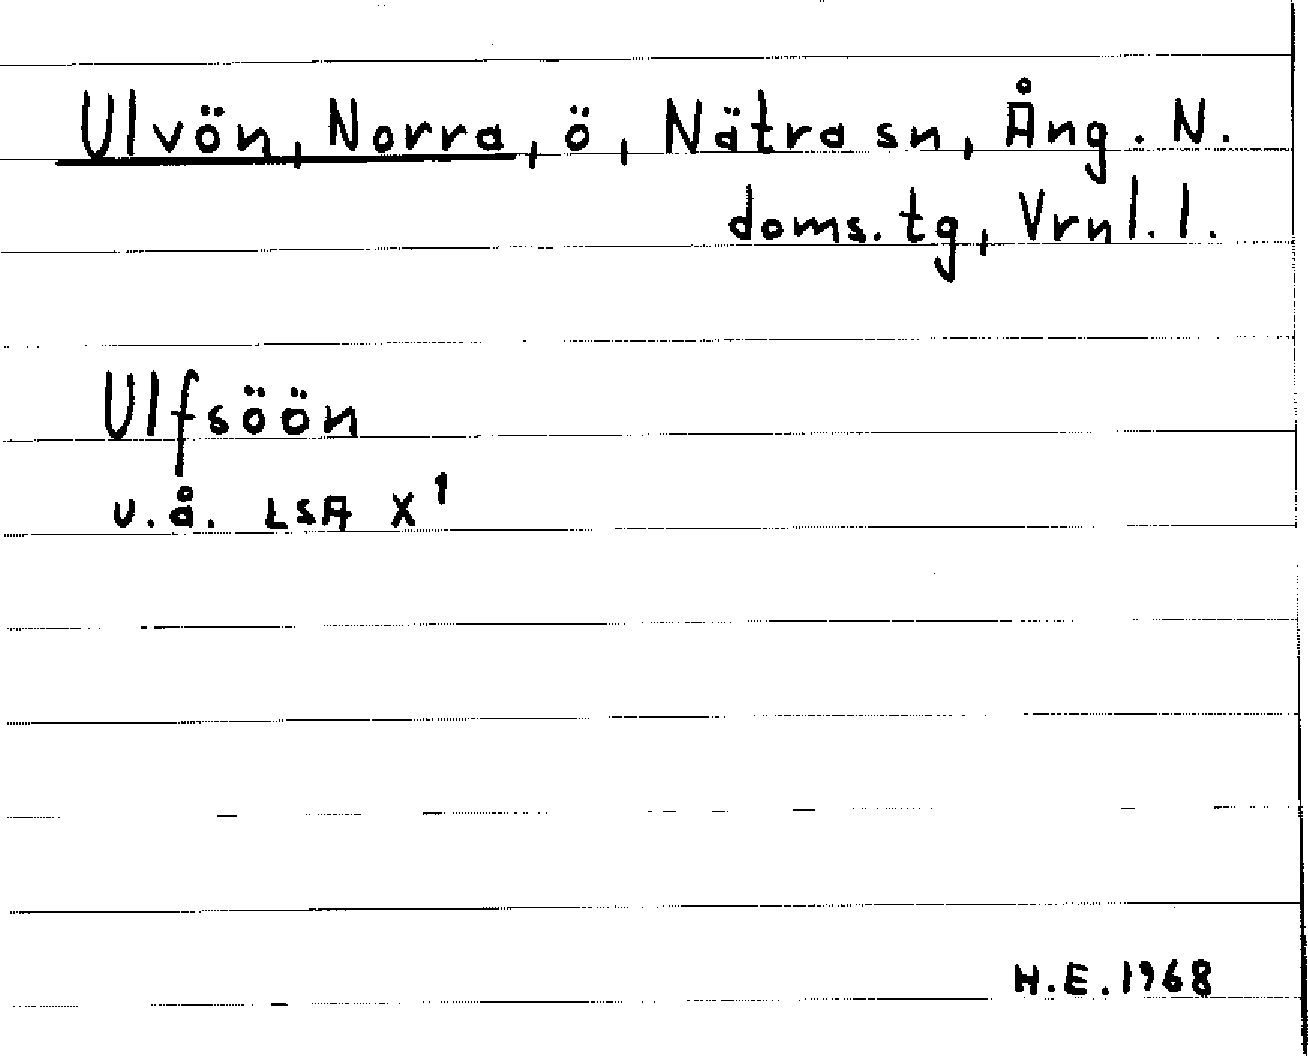 Ulvön, Norra, ö, Nätra sn, Ång. N.
doms. tg, Vrnl. l.
Ulfsöön
u.å. LSA X¹
H.E. 1968